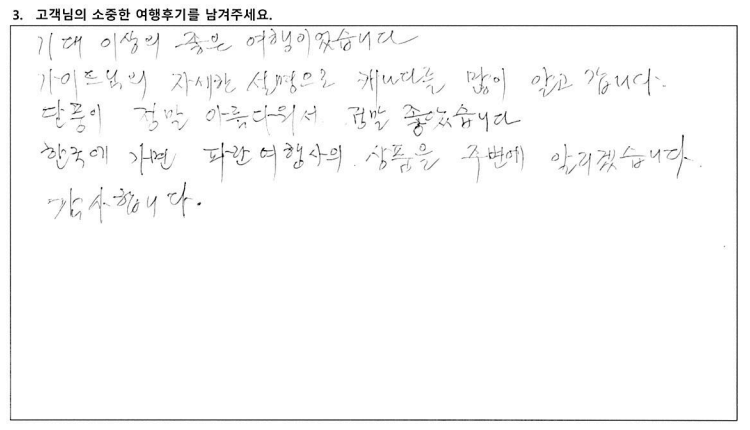 3. 고객님의 소중한 여행후기를 남겨주세요.
기대 이상의 좋은 여행이었습니다
가이드님의 자세한 설명으로 캐나다를 많이 알고 갑니다.
단풍이 정말 아름다워서 정말 좋았습니다
한국에 가면 파란여행사의 상품을 주변에 알리겠습니다.
감사합니다.